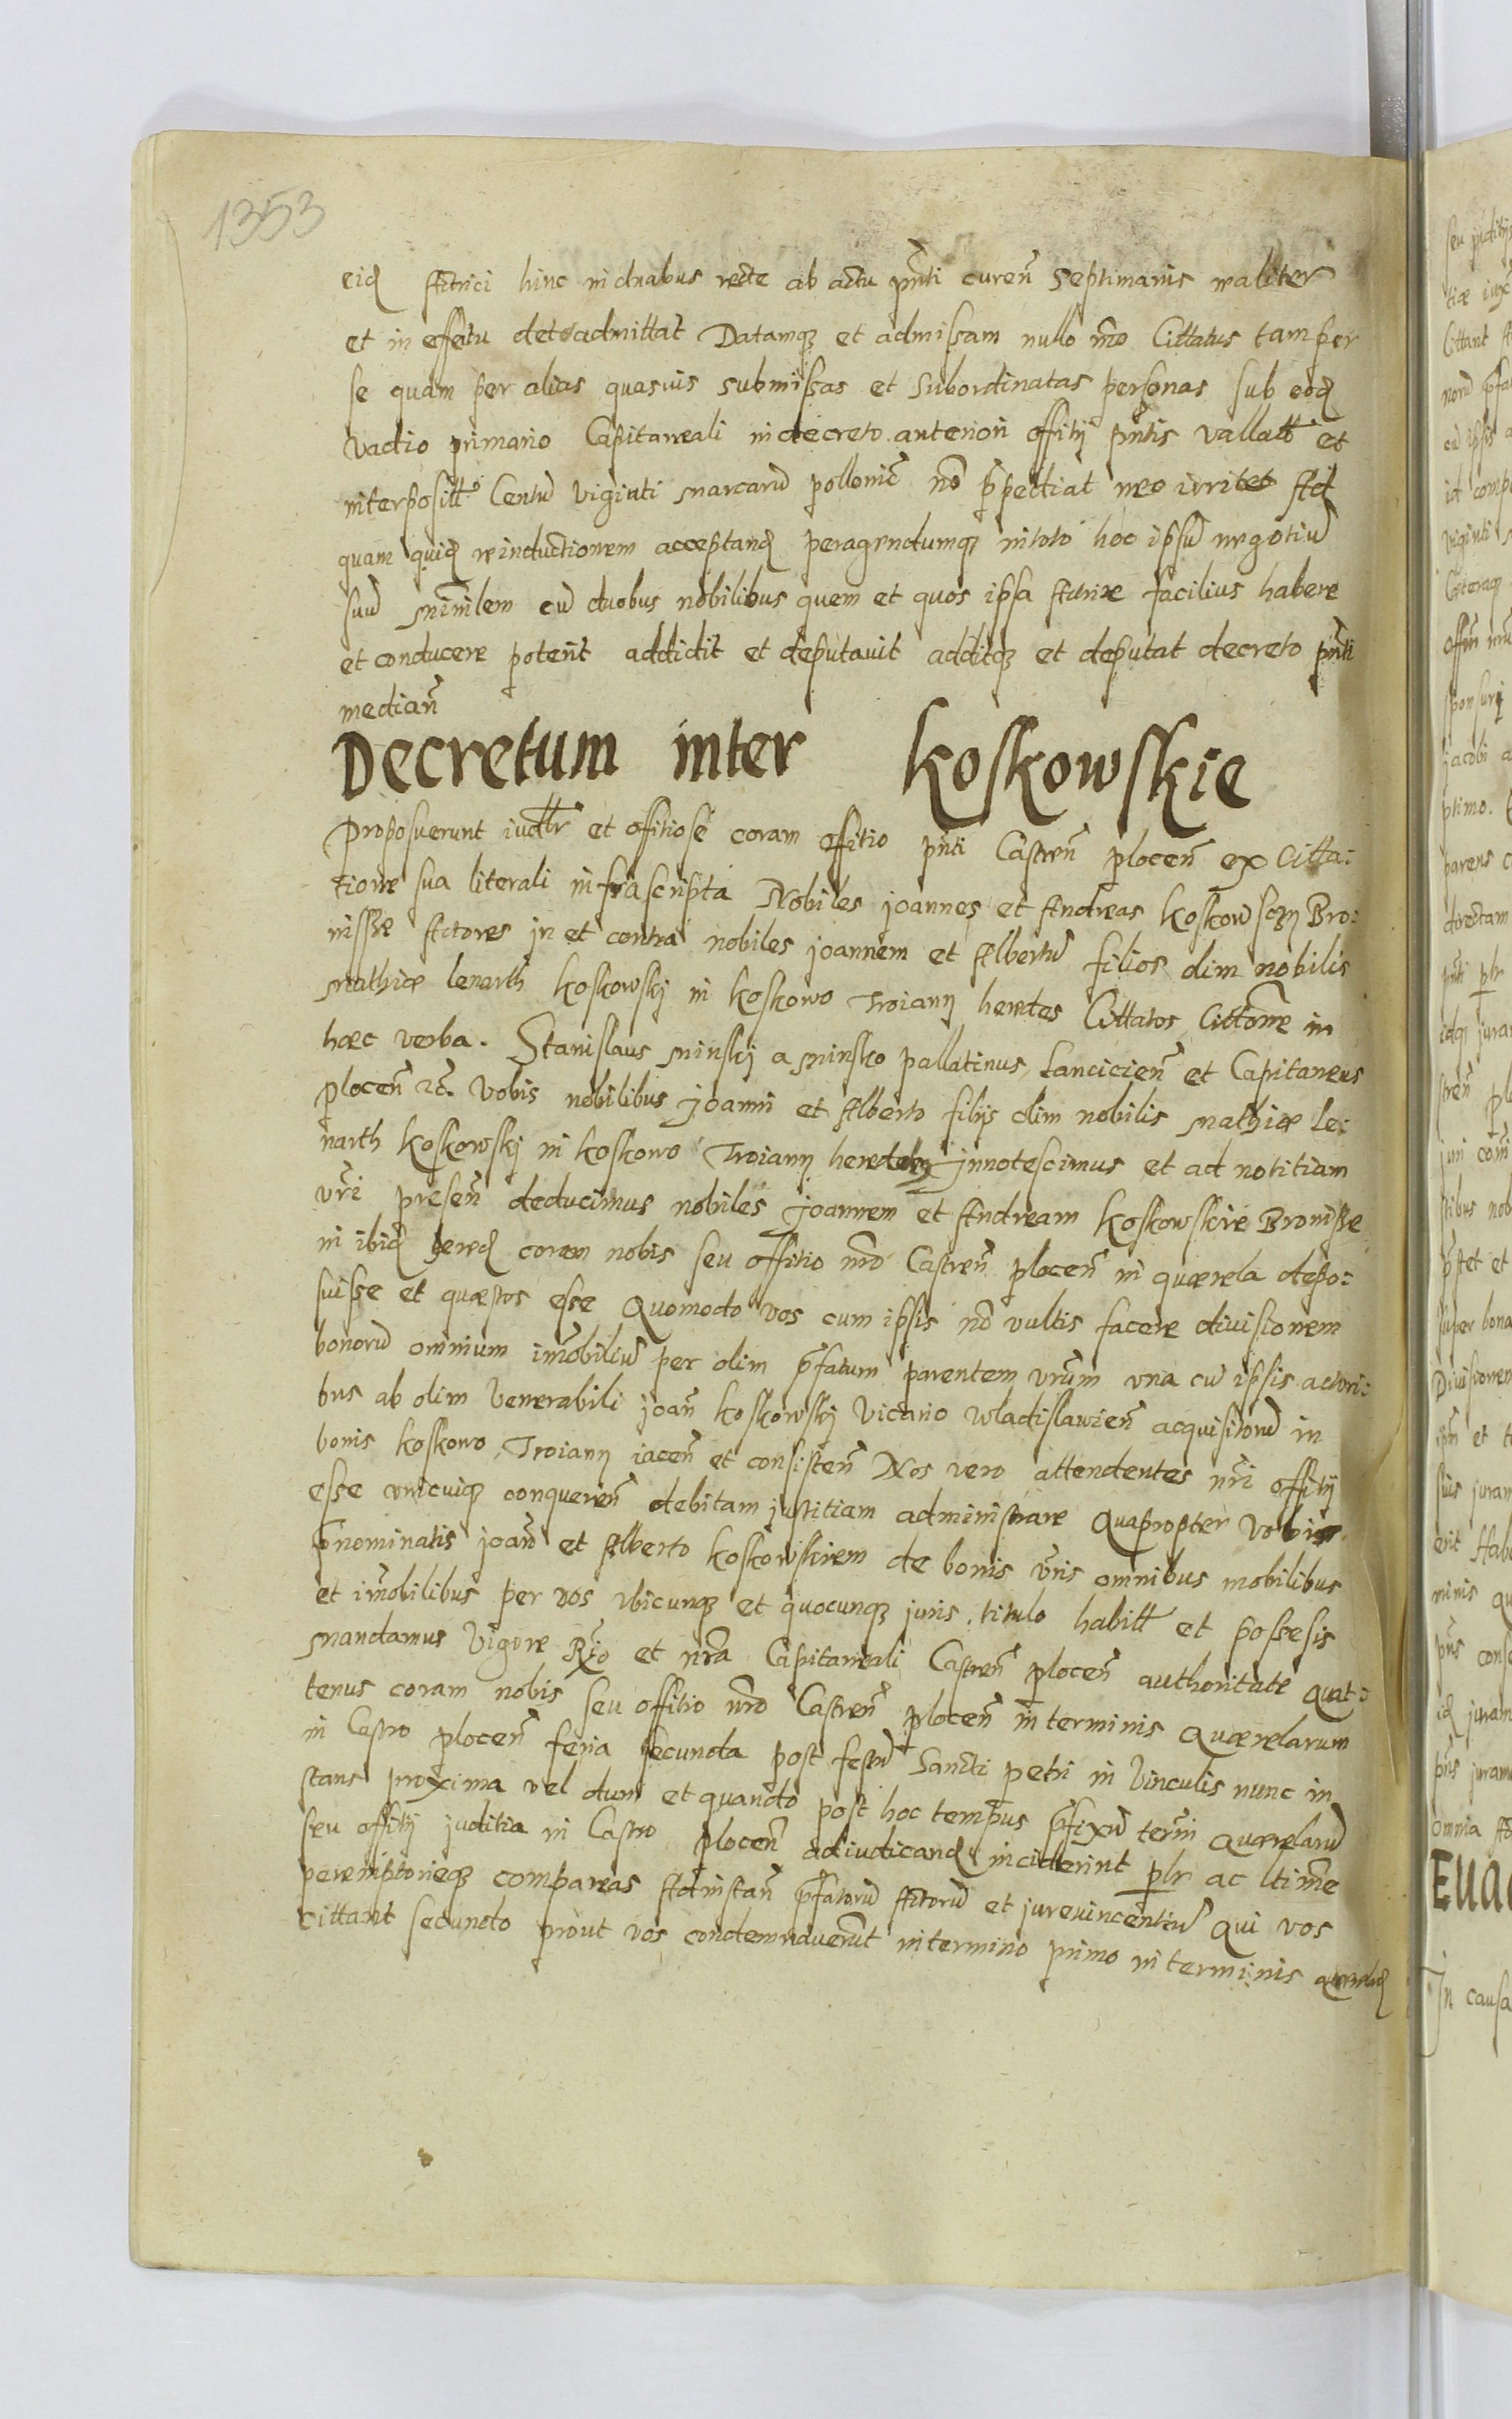 1353
eid Actrici hinc in duabus recte ab actu pnti curen septimanis realiter
et in effectu det et admittat Datamq et admissam nullo mo Cittatus tam per
se quam per alias quasuis submissas et subordinatas personas sub eod
vadio primario Capitaneali in decreto anteriori offitij pntis vallatt et
interposittº Centu viginti marcaru pollonic no impediat neo irritet Ad
quam quid reinductionem acceptand peragendumq in toto hoc ipsu negotiu
suu ministerialem cu duobus nobilibus quem et quos ipsa Actrix facilius habere
et conducere poterit addidit et deputauit additq et deputat decreto pnti
median
Decretum inter Koskowskie
Proposuerunt iudtlr et offitiose coram offitio pnti Castren plocen ex Citta:
tione sua literali infrascripta Nobiles joannes et Andreas Koskowsczy Bro:
nissze Actores jn et contra nobiles joannem et Albertu filios olim nobilis
Mathiae lenarth Koskowskj in Koskowo Troiany heredes Cittatos Cittone in
haec verba. Stanislaus Minskj a Minsko pallatinus Lancicien et Capitaneus
plocen etc. Vobis nobilibus Joanni et Alberto filijs olim nobilis Mathiae le:
narth Koskowskj in Koskowo Troiany heredebus Jnnotescimus et ad notitiam
vri presen deducimus nobiles Joannem et Andream Koskowskie Bronissze
in ibid hered coram nobis seu offitio nro Castren plocen in quaerela depo:
suisse et quaestos esse Quomodo vos cum ipsis no vultis facere diuisionem
bonoru omnium imobiliu per olim pfatum parentem vrum vna cu ipsis actori:
bus ab olim Venerabili joan Koskowskj Vicario wladislawien acquisitoru in
bonis Koskowo Troiany iacen et consisten Nos vero attendentes nri offitij
esse vnicuiq conqueren debitam justitiam administrare Quapropter Vobis
pnominatis joani et Alberto Koskowskiem de bonis vris omnibus mobilibus
et imobilibus per vos vbicunq et quocunq juris titulo habitt et possesis
mandamus Vigore Rio et nra Capitaneali Castren plocen authoritate quat:
tenus coram nobis seu offitio nro Castren plocen in terminis Quaerelarum
in Castro plocen feria secunda post festu Sancti petri in Vinculis nunc in
stans proxima vel dum et quando post hoc tempus pfixu termi Quaerelaru
seu offitij juditia in Castro plocen adiudicand inciderint plr ac ltime
peremptorieq compareas Ad instan pfatoru Actoru et jureuincentiu Qui vos
cittant secundo prout vos condemnauerut in termino primo in terminis quaerelar